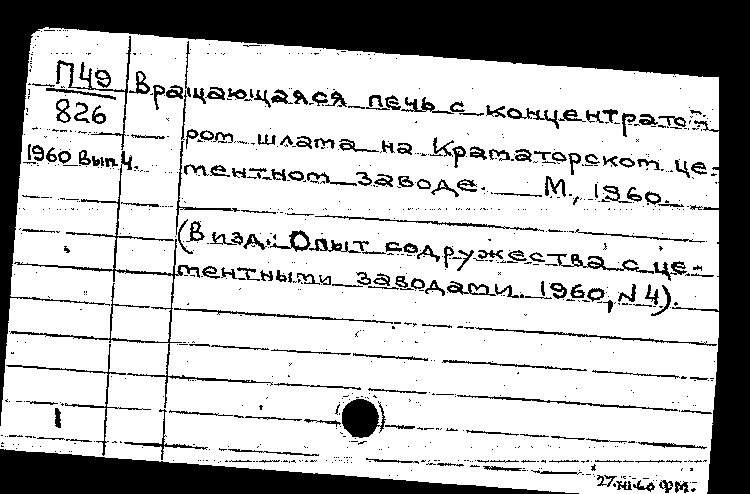 П49
826
1960 Вып 4.
Вращающаяся печь с концентрато-
ром шлама на Краматорском це-
ментном заводе. М., 1960.
(В изд.: Опыт содружества с це-
ментными заводами. 1960, N 4).
1
27.XII.60 ФМ.